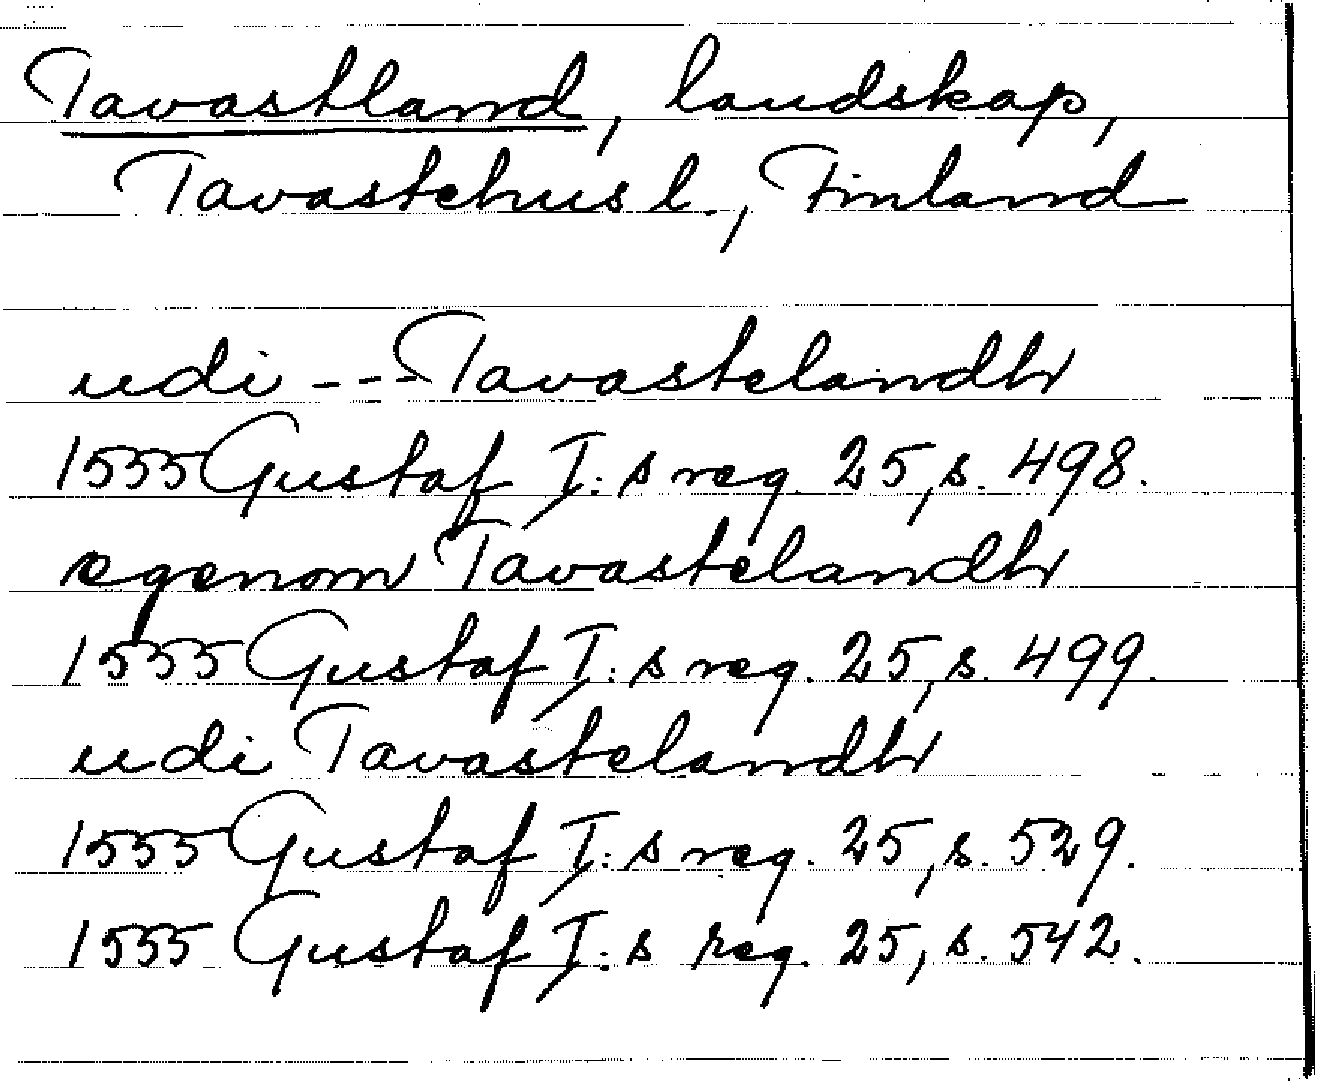 Tavastland, landskap,
Tavastehus l., Finland
udi --- Tavastelandh
1555 Gustaf I:s reg. 25, s. 498.
egenom Tavastelandh
1555 Gustaf I:s reg. 25, s. 499.
udi Tavastelandh
1555 Gustaf I:s reg. 25, s. 529.
1555 Gustaf I:s reg. 25, s. 542.